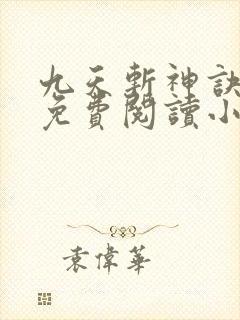 九天斬神訣
免費閱讀小
袁偉華